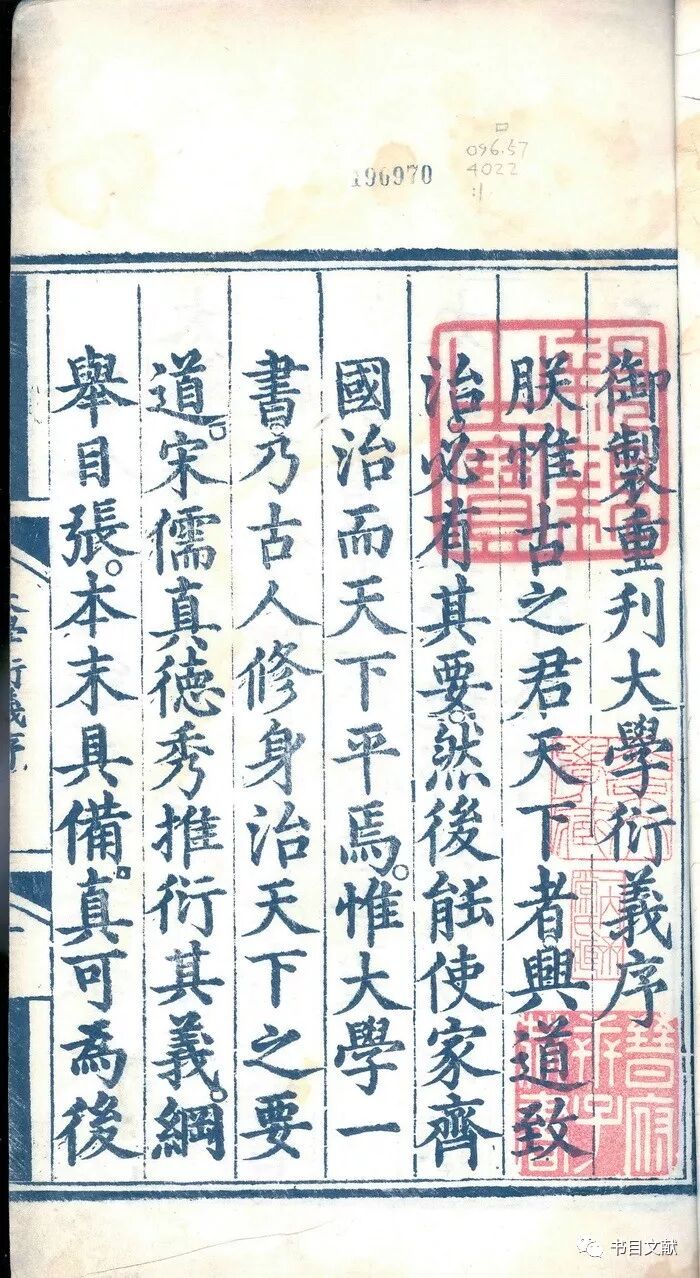 196970
096.57
4022
:1
御製重刊大學衍義序
朕惟古之君天下者興道致
治。必有其要。然後能使家齊
國治而天下平焉。惟大學一
書。乃古人修身治天下之要
道。宋儒真德秀推衍其義。綱
舉目張。本末具備。真可為後
大學衍義序
书目文献